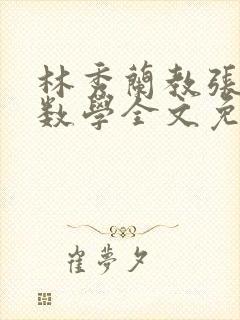 林秀蘭教張
数學全文免
崔夢夕